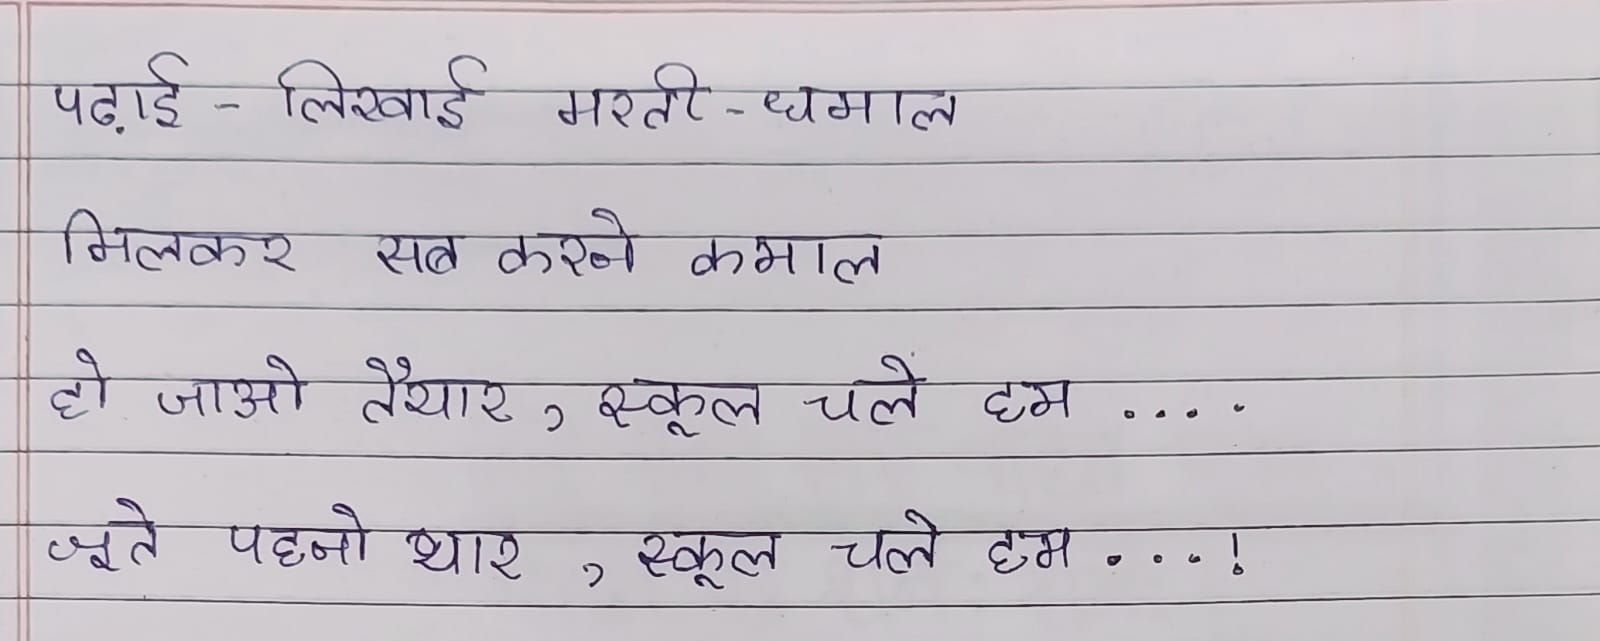 पढ़ाई - लिखाई मस्ती - धमाल
मिलकर सब करने कमाल
हो जाओ तैयार, स्कूल चलें हम ....
जूते पहनो यार, स्कूल चले हम ....!